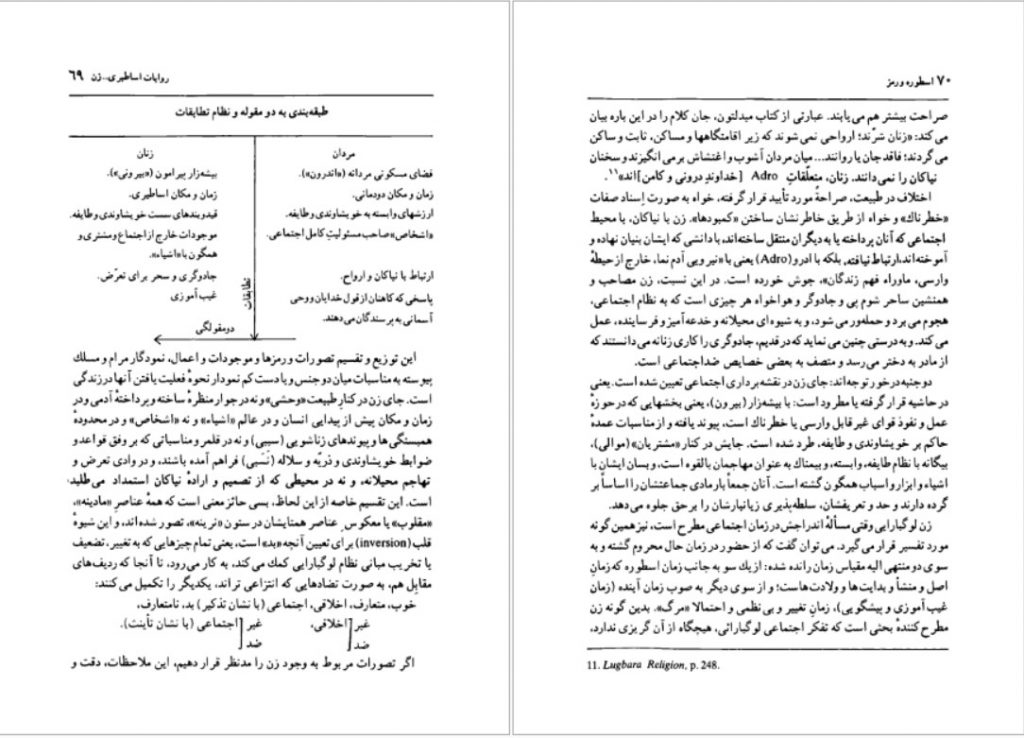 روایات اساطیری...زن ۶۹
طبقه‌بندی به دو مقوله و نظام تطابقات
مردان
فضای مسکونی مردانه («اندرون»).
زمان و مکان دودمانی.
ارزشهای وابسته به خویشاوندی و طایفه.
«اشخاص» صاحب مسئولیت کامل اجتماعی.
ارتباط با نیاکان و ارواح.
پاسخی که کاهنان از قول خدایان و وحی
آسمانی به پرسندگان می‌دهند.
زنان
بیشه‌زار پیرامون («بیرونی»).
زمان و مکان اساطیری.
قیدوبندهای سست خویشاوندی و طایفه.
موجودات خارج از اجتماع و مشتری و
همگون با «اشیاء».
جادوگری و سحر برای تعرّض.
غیب‌آموزی
تطابقات
دومقولگی
این توزیع و تقسیم تصورات و رمزها و موجودات و اعمال، نمودگار مرام و مسلک
پیوسته به مناسبات میان دو جنس و یا دست کم نمودار نحوهٔ فعلیت یافتن آنها در زندگی
است. جای زن در کنار طبیعت «وحشی» و نه در جوار منظرهٔ ساخته و پرداختهٔ آدمی و در
زمان و مکان پیش از پیدایی انسان و در عالم «اشیاء» و نه «اشخاص» و در محدودهٔ
همبستگی‌ها و پیوندهای زناشویی (سببی) و نه در قلمرو مناسباتی که بر وفق قواعد و
ضوابط خویشاوندی و ذریّه و سلاله (نَسَبی) فراهم آمده باشند، و در وادی تعرض و
تهاجم محیلانه، و نه در محیطی که از تصمیم و ارادهٔ نیاکان استمداد می‌طلبد،
است. این تقسیم خاصه از این لحاظ، بسی حائز معنی است که همهٔ عناصر «مادینه»،
«مقلوب» یا معکوس عناصر همتایشان در ستون «نرینه»، تصور شده‌اند، و این شیوهٔ
قلب (inversion) برای تعیین آنچه «بد» است، یعنی تمام چیزهایی که به تغییر، تضعیف
یا تخریب مبانی نظام لوگبارایی کمک می‌کند، به کار می‌رود، تا آنجا که ردیف‌های
مقابل هم، به صورت تضادهایی که انتزاعی تراند، یکدیگر را تکمیل می‌کنند:
خوب، متعارف، اخلاقی، اجتماعی (با نشان تذکیر) بد، نامتعارف،
غیر [اخلاقی، غیر [اجتماعی (با نشان تأنیث).
ضد ضد
اگر تصورات مربوط به وجود زن را مدنظر قرار دهیم، این ملاحظات، دقت و
۷۰ اسطوره و رمز
صراحت بیشتر هم می‌یابند. عبارتی از کتاب میدلتون، جان کلام را در این باره بیان
می‌کند: «زنان شرّند؛ ارواحی نمی‌شوند که زیر اقامتگاهها و مساکن، ثابت و ساکن
می‌گردند؛ فاقد جان یا روانند... میان مردان آشوب و اغتشاش برمی‌انگیزند و سخنان
نیاکان را نمی‌دانند. زنان، متعلّقاتِ Adro [خداوند درونی و کامن] اند»۱۱.
اختلاف در طبیعت، صراحةً مورد تأیید قرار گرفته، خواه به صورت اِسناد صفات
«خطرناک» و خواه از طریق خاطرنشان ساختن «کمبودها». زن با نیاکان، با محیط
اجتماعی که آنان پرداخته یا به دیگران منتقل ساخته‌اند، با دانشی که ایشان بنیان نهاده و
آموخته‌اند، ارتباط نیافته، بلکه با ادرو (Adro) یعنی با «نیرویی آدم نما، خارج از حیطهٔ
وارسی، ماوراء فهم زندگان»، جوش خورده است. در این نسبت، زن مصاحب و
همنشین ساحر شوم پی و جادوگر و هواخواه هر چیزی است که به نظام اجتماعی،
هجوم می‌برد و حمله‌ور می‌شود، و به شیوه‌ای محیلانه و خدعه‌آمیز و فرساینده، عمل
می‌کند. و به درستی چنین می‌نماید که در قدیم، جادوگری را کاری زنانه می‌دانستند که
از مادر به دختر می‌رسد و متصف به بعضی خصایص ضداجتماعی است.
دو جنبه درخور توجه‌اند: جای زن در نقشه‌برداری اجتماعی تعیین شده است. یعنی
در حاشیه قرار گرفته یا مطرود است: با بیشه‌زار (بیرون)، یعنی بخشهایی که در حوزهٔ
عمل و نفوذ قوای غیر قابل وارسی یا خطرناک است، پیوند یافته و از مناسبات عمدهٔ
حاکم بر خویشاوندی و طایفه، طرد شده است. جایش در کنار «مشتریان» (موالی)،
بیگانه با نظام طایفه، وابسته، و بیمناک به عنوان مهاجمان بالقوه است، و بسان ایشان با
اشیاء و ابزار و اسباب همگون گشته است. آنان جمعاً بار مادی جماعتشان را اساساً بر
گرده دارند و حد و تعریفشان، سلطه‌پذیری زیانبارشان را برحق جلوه می‌دهد.
زن لوگبارایی وقتی مسألهٔ اندراجش در زمان اجتماعی مطرح است، نیز همین گونه
مورد تفسیر قرار می‌گیرد. می‌توان گفت که از حضور در زمان حال محروم گشته و به
سوی دو منتهی الیه مقیاس زمان رانده شده: از یک سو به جانب زمان اسطوره که زمان
اصل و منشأ و بدایت‌ها و ولادت‌هاست؛ و از سوی دیگر به صوب زمان آینده (زمان
غیب‌آموزی و پیشگویی)، زمان تغییر و بی‌نظمی و احتمالا «مرگ». بدین گونه زن
مطرح کنندهٔ بحثی است که تفکر اجتماعی لوگبارائی، هیچگاه از آن گریزی ندارد،
11. Lugbara Religion, p. 248.